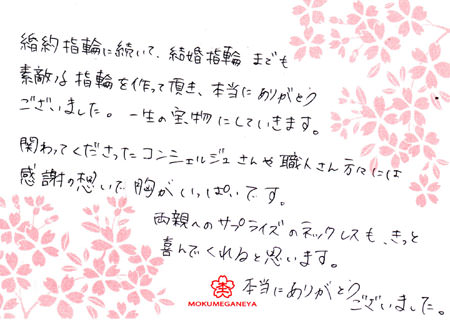 婚約指輪に続いて、結婚指輪までも
素敵な指輪を作って頂き、本当にありがとう
ございました。一生の宝物にしていきます。
関わってくださったコンシェルジュさんや職人さん方々には
感謝の想いで胸がいっぱいです。
両親へのサプライズのネックレスも、きっと
喜んでくれると思います。
本当にありがとう
ございました。
MOKUMEGANEYA